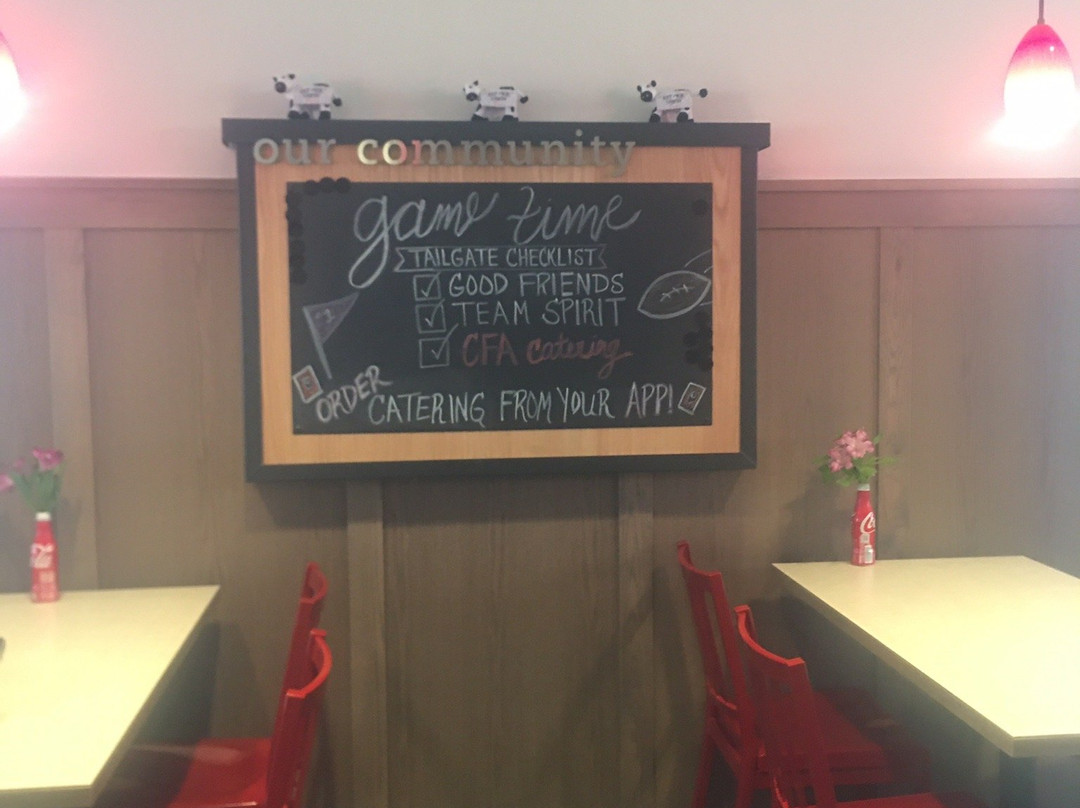 our community
game time
TAILGATE CHECKLIST
GOOD FRIENDS
TEAM SPIRIT
CFA Catering
ORDER
CATERING FROM YOUR APP!